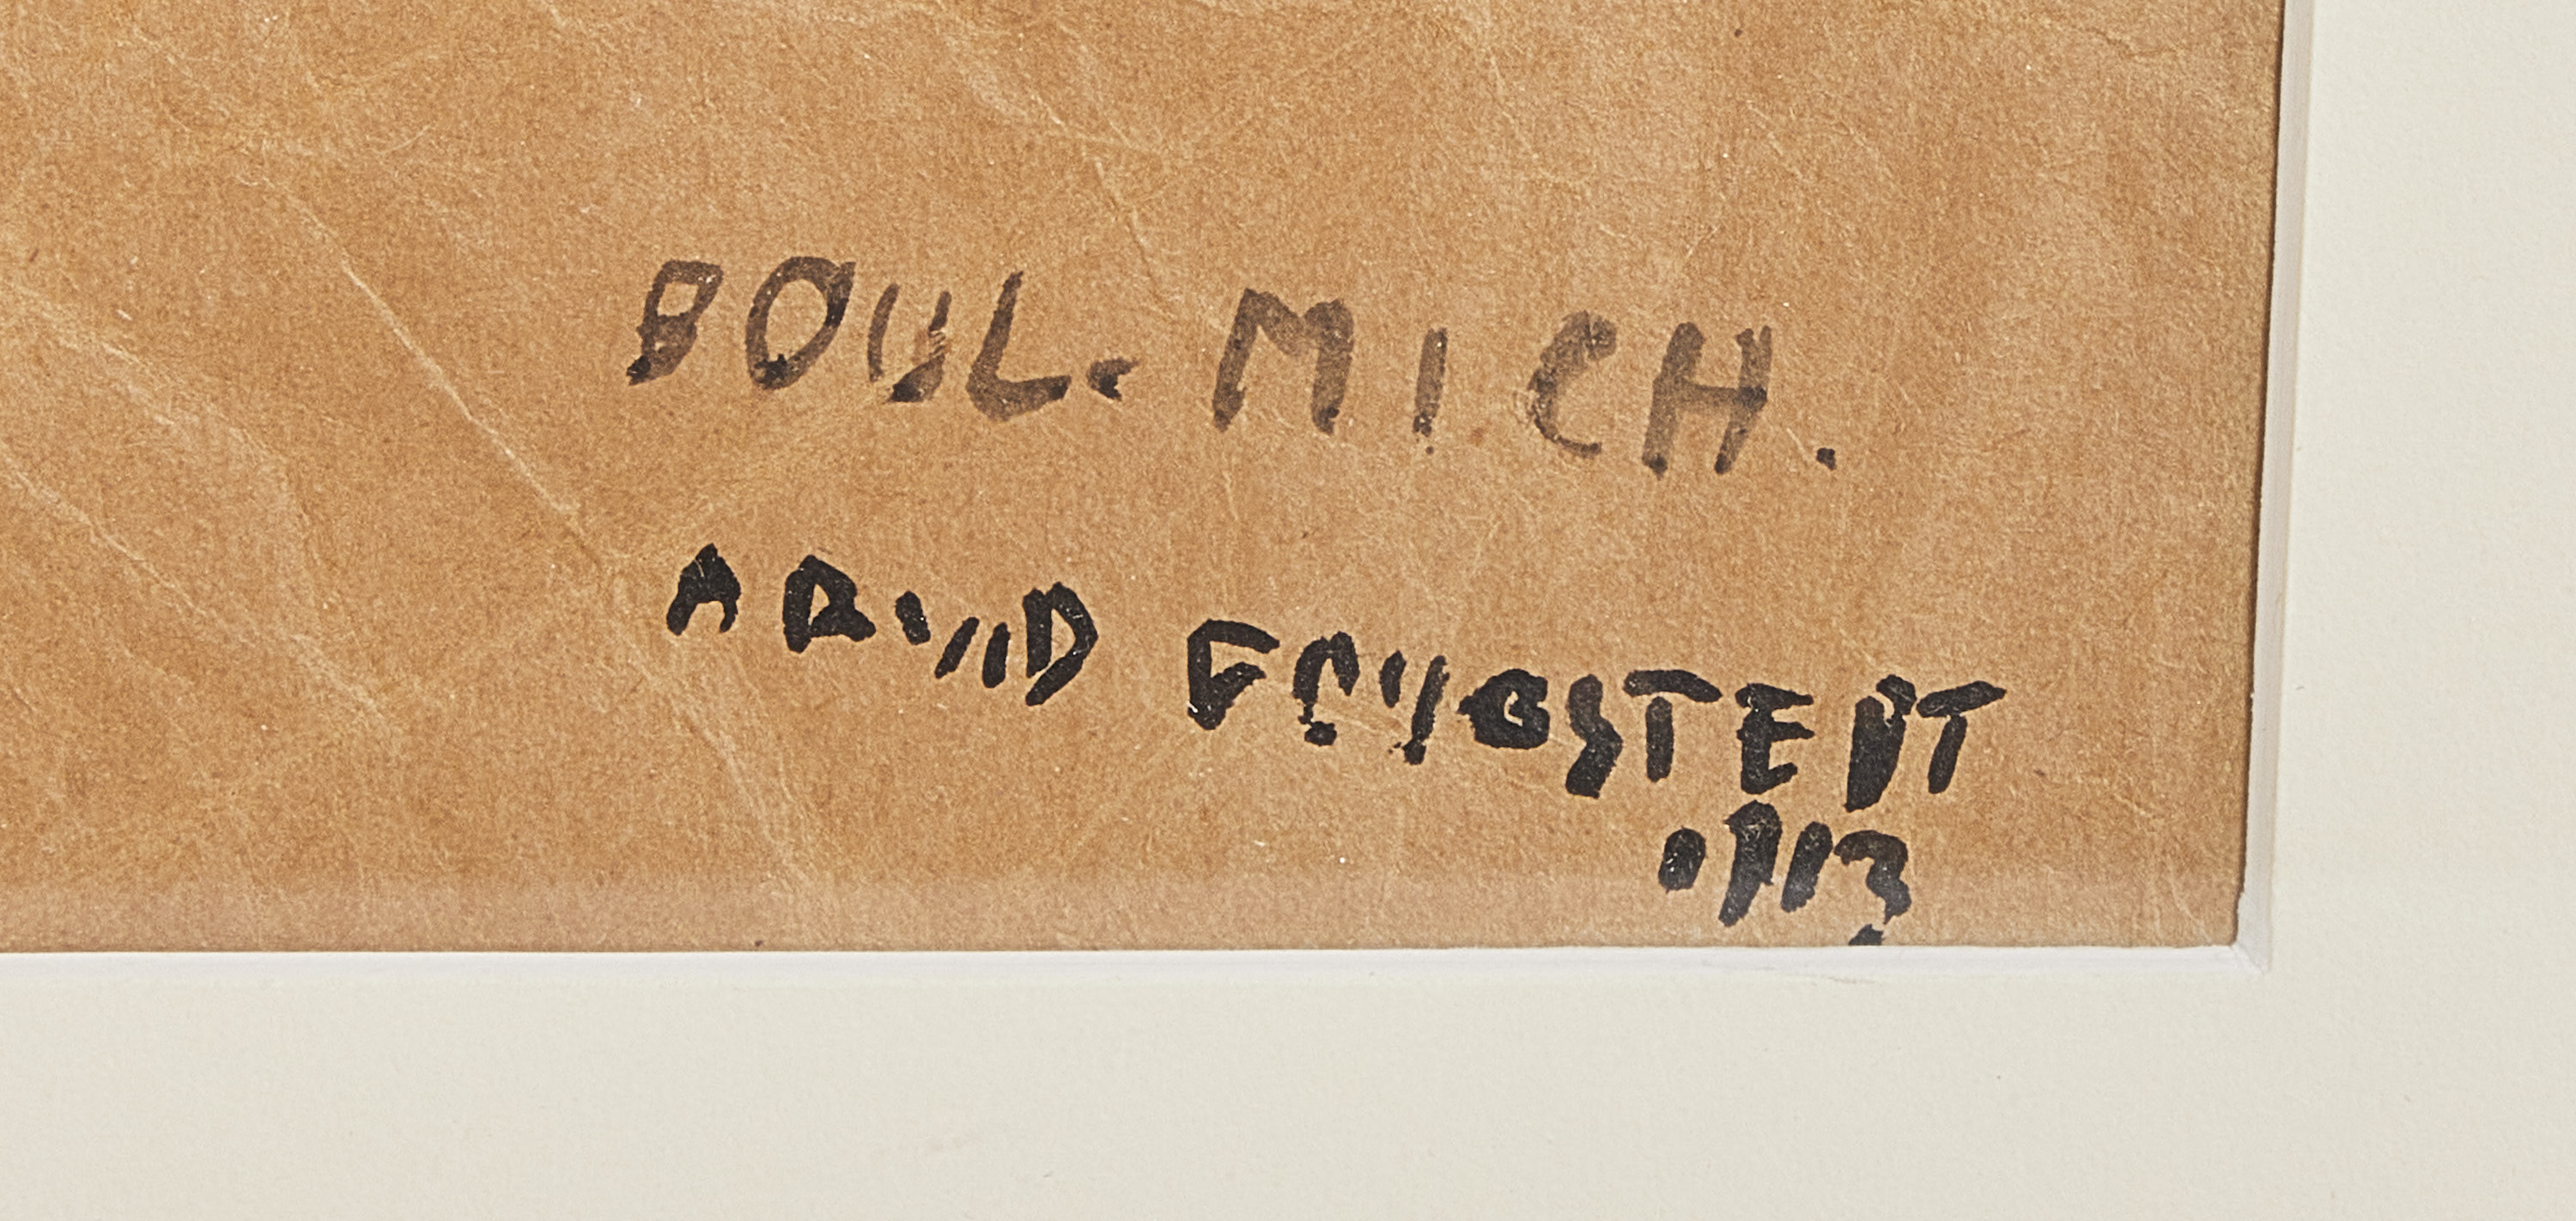 BOUL. MICH.
ARVID FOUGSTEDT
1913